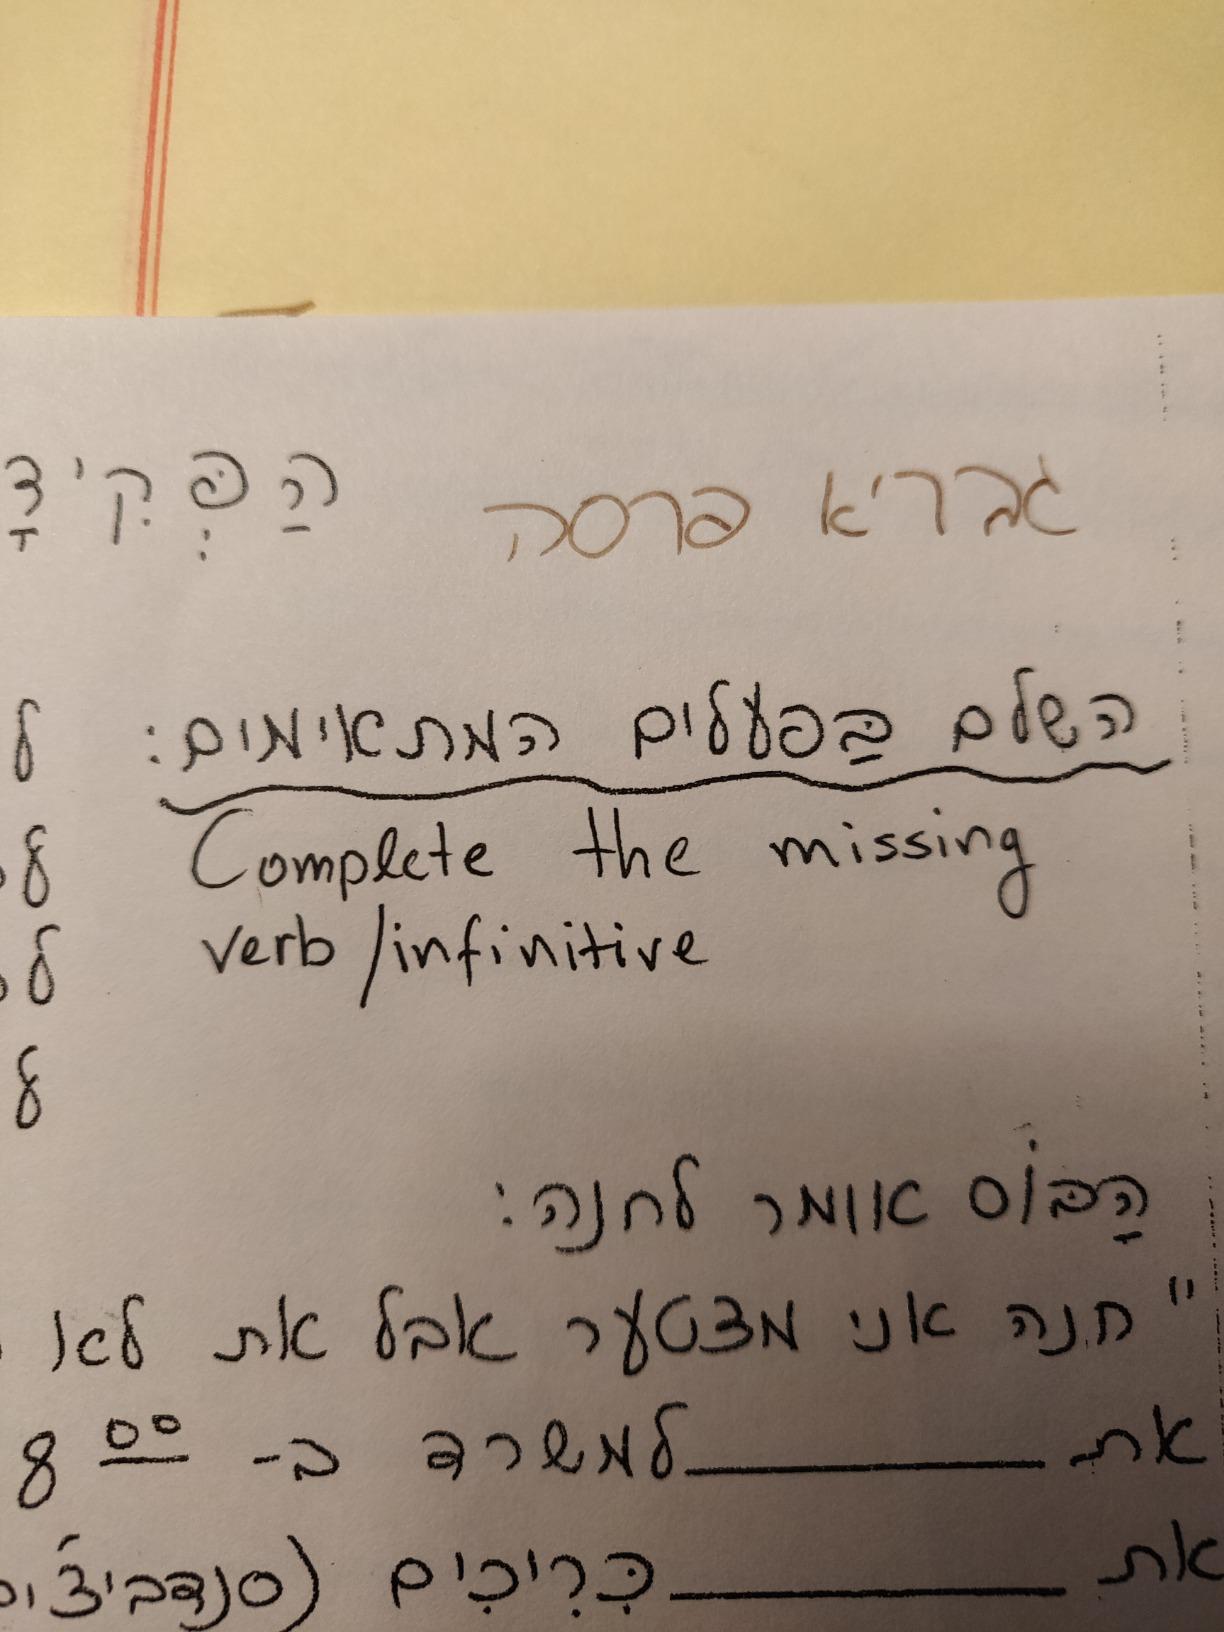 גבריא פרסה הַפְּקִידָ
השלם בַּפעלים המתאימים:
Complete the missing
verb/infinitive
הַבּוֹס אומר לחנה:
"חנה אני מצטער אבל את לא
את ________ למשרד ב- 8 00
את ________ כְּרִיכִים (סנדביצ'